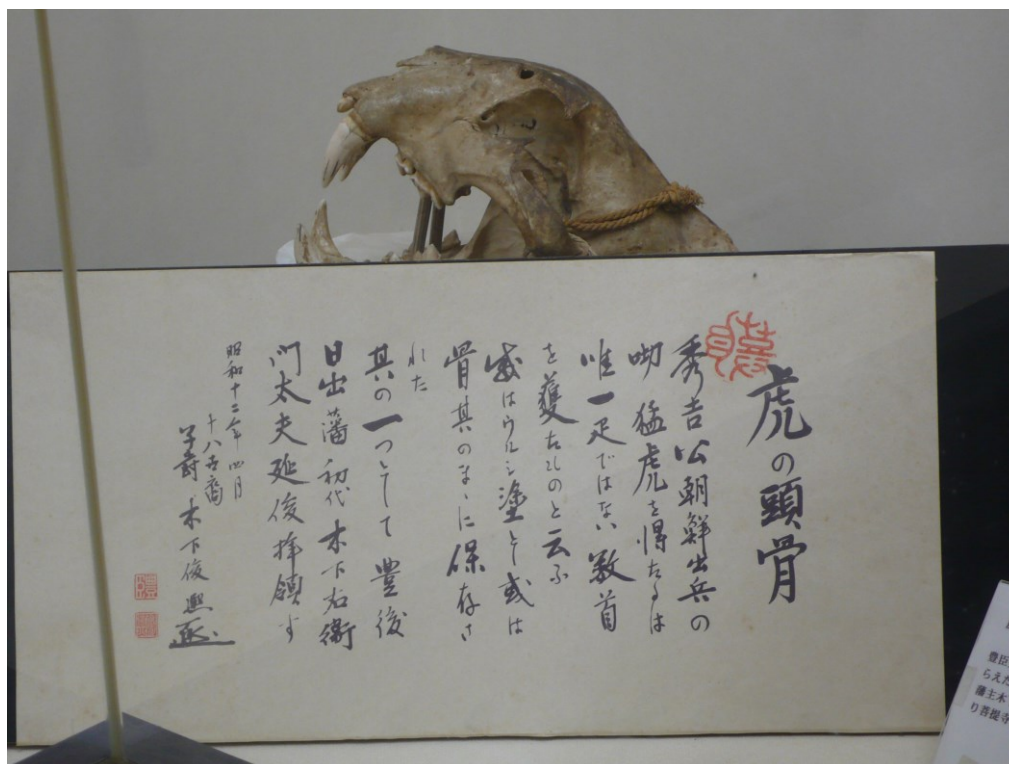 虎の頭骨
秀吉公朝鮮出兵の
砌猛虎を得たるは
唯一疋ではない数首
を獲たものと云ふ
或はウルシ塗とし或は
骨其のまゝに保存さ
れた
其の一つとして豊後
日出藩初代木下右衛
門太夫延俊拝領す
昭和十二年四月
十八世裔
子爵木下俊
豊臣
らえた
藩主木
り菩提寺